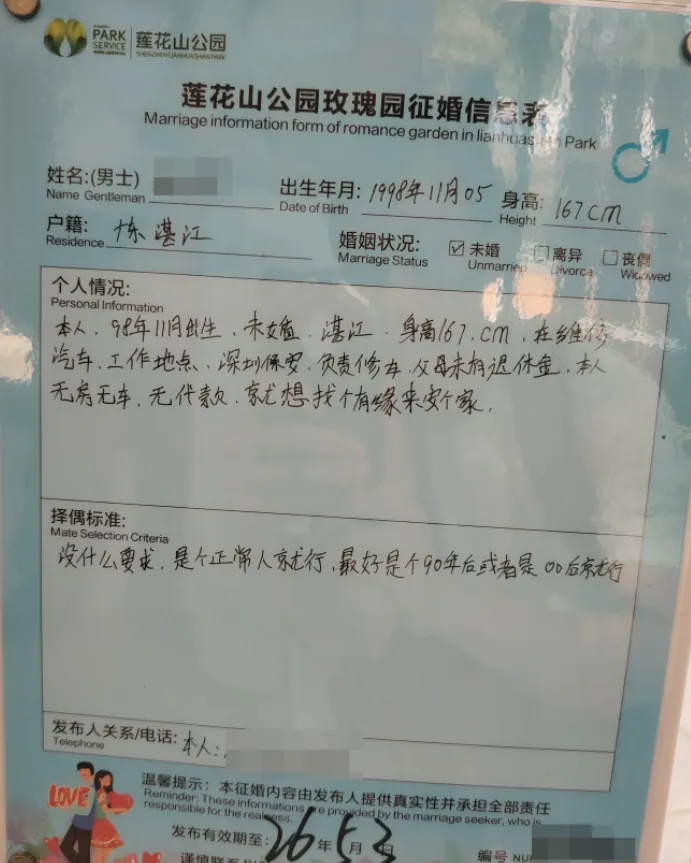 PARK
SERVICE
莲花山公园
SHENZHEN LIANHUASHAN PARK
莲花山公园玫瑰园征婚信息表
Marriage information form of romance garden in lianhuashan Park
姓名:(男士)
Name Gentleman
出生年月: 1998年11月05
Date of Birth
身高: 167cm
Height
户籍: 湛江
Residence
婚姻状况: ☑未婚 □离异 □丧偶
Marriage Status Unmarried Divorca Widowed
个人情况:
Personal Information
本人、98年11月出生、未婚、湛江、身高167.cm、在维修
汽车、工作地点、深圳保安、负责修车、父母未有退休金、本人
无房无车、无代款、就想找个有缘来安个家.
择偶标准:
Mate Selection Criteria
没什么要求、是个正常人就行、最好是个90年后或者是00后就行
发布人关系/电话: 本人:
Telephone
LOVE
温馨提示：本征婚内容由发布人提供真实性并承担全部责任
Reminder: These informations are provided by the marriage seeker, who is
responsible for the realness.
发布有效期至: 26年5月3日
谨慎联系
编号 NU